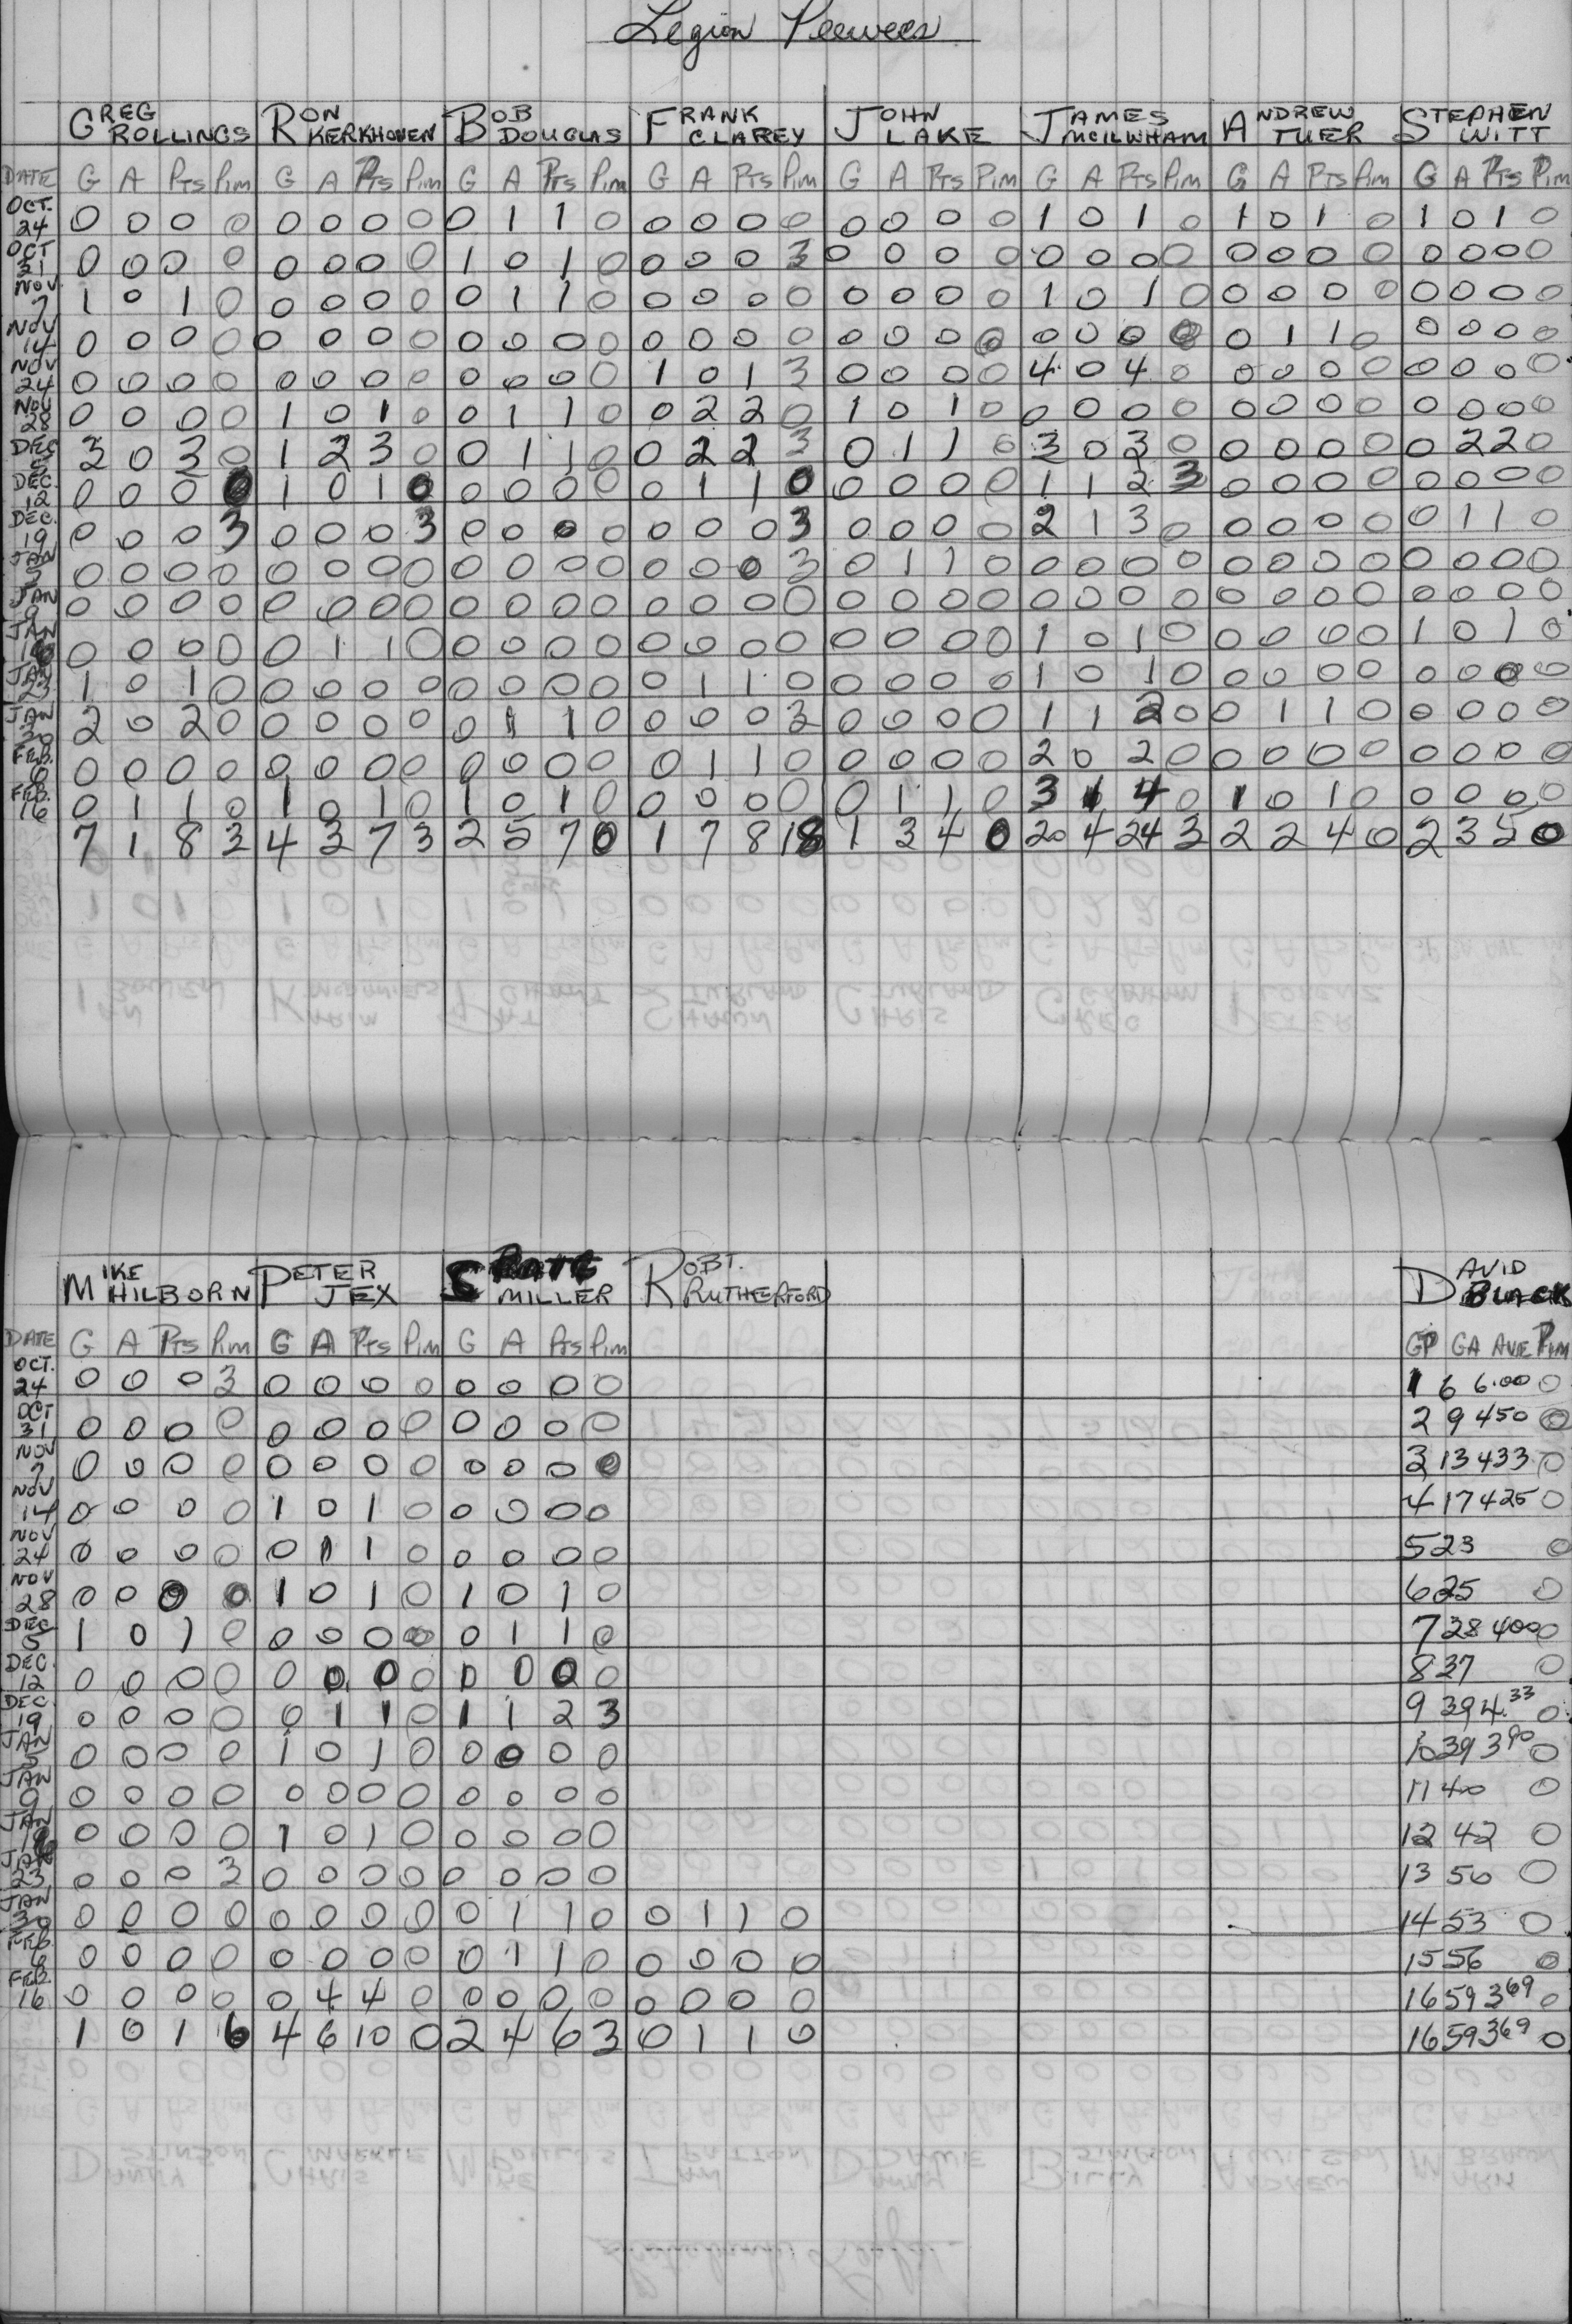 Legion Peewees
GREG ROLLINGS RON KERKHOVEN BOB DOUGLAS FRANK CLAREY JOHN LAKE JAMES MCILWHAM ANDREW TUER STEPHEN WITT
DATE G A Pts Pim G A Pts Pim G A Pts Pim G A Pts Pim G A Pts Pim G A Pts Pim G A Pts Pim G A Pts Pim
OCT. 24 0 0 0 0 0 0 0 0 0 1 1 0 0 0 0 0 0 0 0 0 1 0 1 0 1 0 1 0 1 0 1 0
OCT 31 0 0 0 0 0 0 0 0 1 0 1 0 0 0 0 3 0 0 0 0 0 0 0 0 0 0 0 0 0 0 0 0
NOV. 7 1 0 1 0 0 0 0 0 0 1 1 0 0 0 0 0 0 0 0 0 1 0 1 0 0 0 0 0 0 0 0 0
NOV 14 0 0 0 0 0 0 0 0 0 0 0 0 0 0 0 0 0 0 0 0 0 0 0 0 0 1 1 0 0 0 0 0
NOV 24 0 0 0 0 0 0 0 0 0 0 0 0 1 0 1 3 0 0 0 0 4 0 4 0 0 0 0 0 0 0 0 0
NOV 28 0 0 0 0 1 0 1 0 0 1 1 0 0 2 2 0 1 0 1 0 0 0 0 0 0 0 0 0 0 0 0 0
DEC 5 3 0 3 0 1 2 3 0 0 1 1 0 0 2 2 3 0 1 1 0 3 0 3 0 0 0 0 0 0 2 2 0
DEC. 12 0 0 0 0 1 0 1 0 0 0 0 0 0 1 1 0 0 0 0 0 1 1 2 3 0 0 0 0 0 0 0 0
DEC. 19 0 0 0 3 0 0 0 3 0 0 0 0 0 0 0 3 0 0 0 0 2 1 3 0 0 0 0 0 0 1 1 0
JAN 5 0 0 0 0 0 0 0 0 0 0 0 0 0 0 0 3 0 1 1 0 0 0 0 0 0 0 0 0 0 0 0 0
JAN 9 0 0 0 0 0 0 0 0 0 0 0 0 0 0 0 0 0 0 0 0 0 0 0 0 0 0 0 0 0 0 0 0
JAN 0 0 0 0 0 1 1 0 0 0 0 0 0 0 0 0 0 0 0 0 1 0 1 0 0 0 0 0 1 0 1 0
JAN 23 1 0 1 0 0 0 0 0 0 0 0 0 0 1 1 0 0 0 0 0 1 0 1 0 0 0 0 0 0 0 0 0
JAN 30 2 0 2 0 0 0 0 0 0 1 1 0 0 0 0 3 0 0 0 0 1 1 2 0 0 1 1 0 0 0 0 0
FEB. 6 0 0 0 0 0 0 0 0 0 0 0 0 0 1 1 0 0 0 0 0 2 0 2 0 0 0 0 0 0 0 0 0
FEB. 16 0 1 1 0 1 0 1 0 1 0 1 0 0 0 0 0 0 1 1 0 3 1 4 0 1 0 1 0 0 0 0 0
7 1 8 3 4 3 7 3 2 5 7 0 1 7 8 18 1 3 4 0 20 4 24 3 2 2 4 0 2 3 5 0
MIKE HILBORN PETER JEX MILLER ROBT. RUTHERFORD DAVID BLACK
DATE G A Pts Pim G A Pts Pim G A Pts Pim GP GA AVE Pim
OCT. 24 0 0 0 3 0 0 0 0 0 0 0 0 1 6 6.00 0
OCT 31 0 0 0 0 0 0 0 0 0 0 0 0 2 9 450 0
NOV 7 0 0 0 0 0 0 0 0 0 0 0 0 3 13 433 0
NOV 14 0 0 0 0 1 0 1 0 0 0 0 0 4 17 425 0
NOV 24 0 0 0 0 0 1 1 0 0 0 0 0 5 23 0
NOV 28 0 0 0 0 1 0 1 0 1 0 1 0 6 25 0
DEC 5 1 0 1 0 0 0 0 0 0 1 1 0 7 28 400 0
DEC. 12 0 0 0 0 0 0 0 0 0 0 0 0 8 37 0
DEC. 19 0 0 0 0 0 1 1 0 1 1 2 3 9 39 4.33 0
JAN 5 0 0 0 0 1 0 1 0 0 0 0 0 10 39 390 0
JAN 9 0 0 0 0 0 0 0 0 0 0 0 0 11 40 0
JAN 0 0 0 0 1 0 1 0 0 0 0 0 12 42 0
JAN 23 0 0 0 3 0 0 0 0 0 0 0 0 13 50 0
JAN 30 0 0 0 0 0 0 0 0 0 1 1 0 0 1 1 0 14 53 0
FEB 6 0 0 0 0 0 0 0 0 0 1 1 0 0 0 0 0 15 56 0
FEB. 16 0 0 0 0 0 4 4 0 0 0 0 0 0 0 0 0 16 59 369 0
1 0 1 6 4 6 10 0 2 4 6 3 0 1 1 0 16 59 369 0